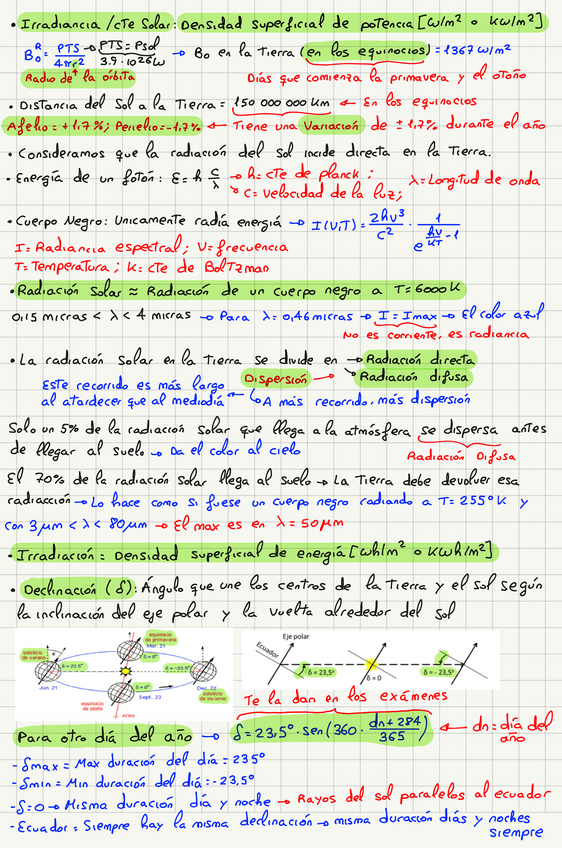 • Irradiancia / cTe Solar: Densidad superficial de potencia [W/m² o kW/m²]
B₀ᴿ = PTS / 4πr² → PTS = Psol / 3.9 · 10²⁶ W → B₀ en la Tierra (en los equinocios) = 1367 W/m²
Radio de la órbita
Días que comienza la primavera y el otoño
• Distancia del Sol a la Tierra = 150 000 000 Km ← En los equinocios
Afelio = +1,7%; Perielio = -1,7% ← Tiene una Variación de ± 1,7% durante el año
• Consideramos que la radiación del Sol incide directa en la Tierra.
• Energía de un fotón: E = h c/λ → h = cTe de planck ; λ = Longitud de onda
→ c = Velocidad de la luz;
• Cuerpo Negro: Unicamente radía energiá → I(υ,T) = 2hν³/c² · 1/(e^(hν/kT) - 1)
I = Radiancia espectral; V = frecuencia
T = Temperatura ; K = cte de BolTzman
• Radiación Solar ≈ Radiación de un cuerpo negro a T = 6000 K
0,15 micras < λ < 4 micras → Para λ = 0,46 micras → I = Imax → El color azul
No es corriente, es radiancia
• La radiación Solar en la Tierra se divide en → Radiación directa
Dispersión → Radiación difusa
Este recorrido es más largo al atardecer que al mediodía ← A más recorrido, más dispersión
Solo un 5% de la radiación Solar que llega a la atmósfera se dispersa antes
de llegar al suelo → Da el color al cielo
Radiación Difusa
El 70% de la radiación Solar llega al Suelo → La Tierra debe devolver esa
radiacción → Lo hace como si fuese un cuerpo negro radiando a T = 255°K y
con 3 μm < λ < 80 μm → El max es en λ = 50 μm
• Irradiación = Densidad superficial de energía [Wh/m² o KWh/m²]
• Declinación (δ): Ángulo que une los centros de la Tierra y el sol según
la inclinación del eje polar y la vuelta alrededor del sol
equinocio de primavera
Mar. 21
solsticio de verano
δ = 23,5°
δ = 0°
δ = -23,5°
Jun. 21
δ = 0°
Dec. 22
solsticio de invierno
Sept. 23
equinocio de otoño
Aries
Eje polar
Ecuador
δ = 23,5°
δ = 0
δ = - 23,5°
Te la dan en los exámenes
Para otro día del año → δ = 23,5° · sen(360 · dn + 284 / 365) ← dn = día del año
- δmax = Max duración del día = 23,5°
- δmin = Min duración del día = -23,5°
- δ = 0 → Misma duración día y noche → Rayos del sol paralelos al ecuador
- Ecuador = Siempre hay la misma declinación → misma duración días y noches
siempre